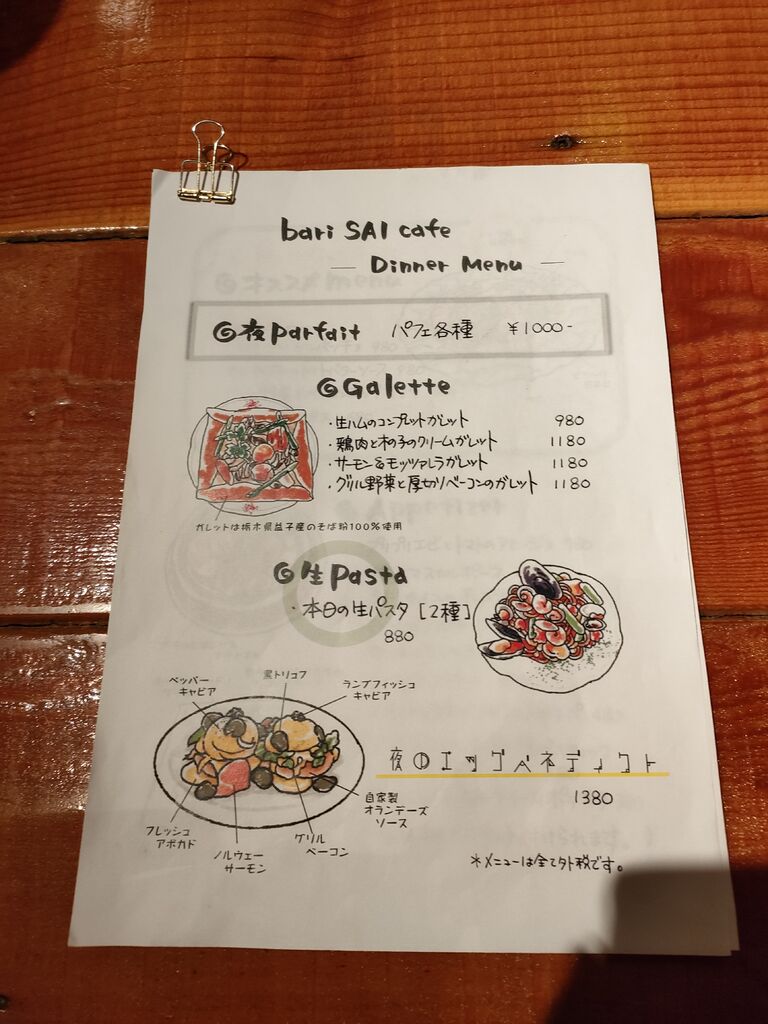 bari SAI cafe
— Dinner Menu —
夜parfait パフェ各種 ¥1000-
Galette
・生ハムのコンプレットガレット 980
・鶏肉と木の子のクリームガレット 1180
・サーモン&モッツァレラガレット 1180
・グリル野菜と厚切りベーコンのガレット 1180
ガレットは栃木県益子産のそば粉100%使用
生Pasta
・本日の生パスタ[2種]
880
ペッパー
キャビア
黒トリュフ
ランプフィッシュ
キャビア
夜のエッグベネディクト
1380
自家製
オランデーズ
ソース
フレッシュ
アボカド
ノルウェー
サーモン
グリル
ベーコン
*メニューは全て外税です。